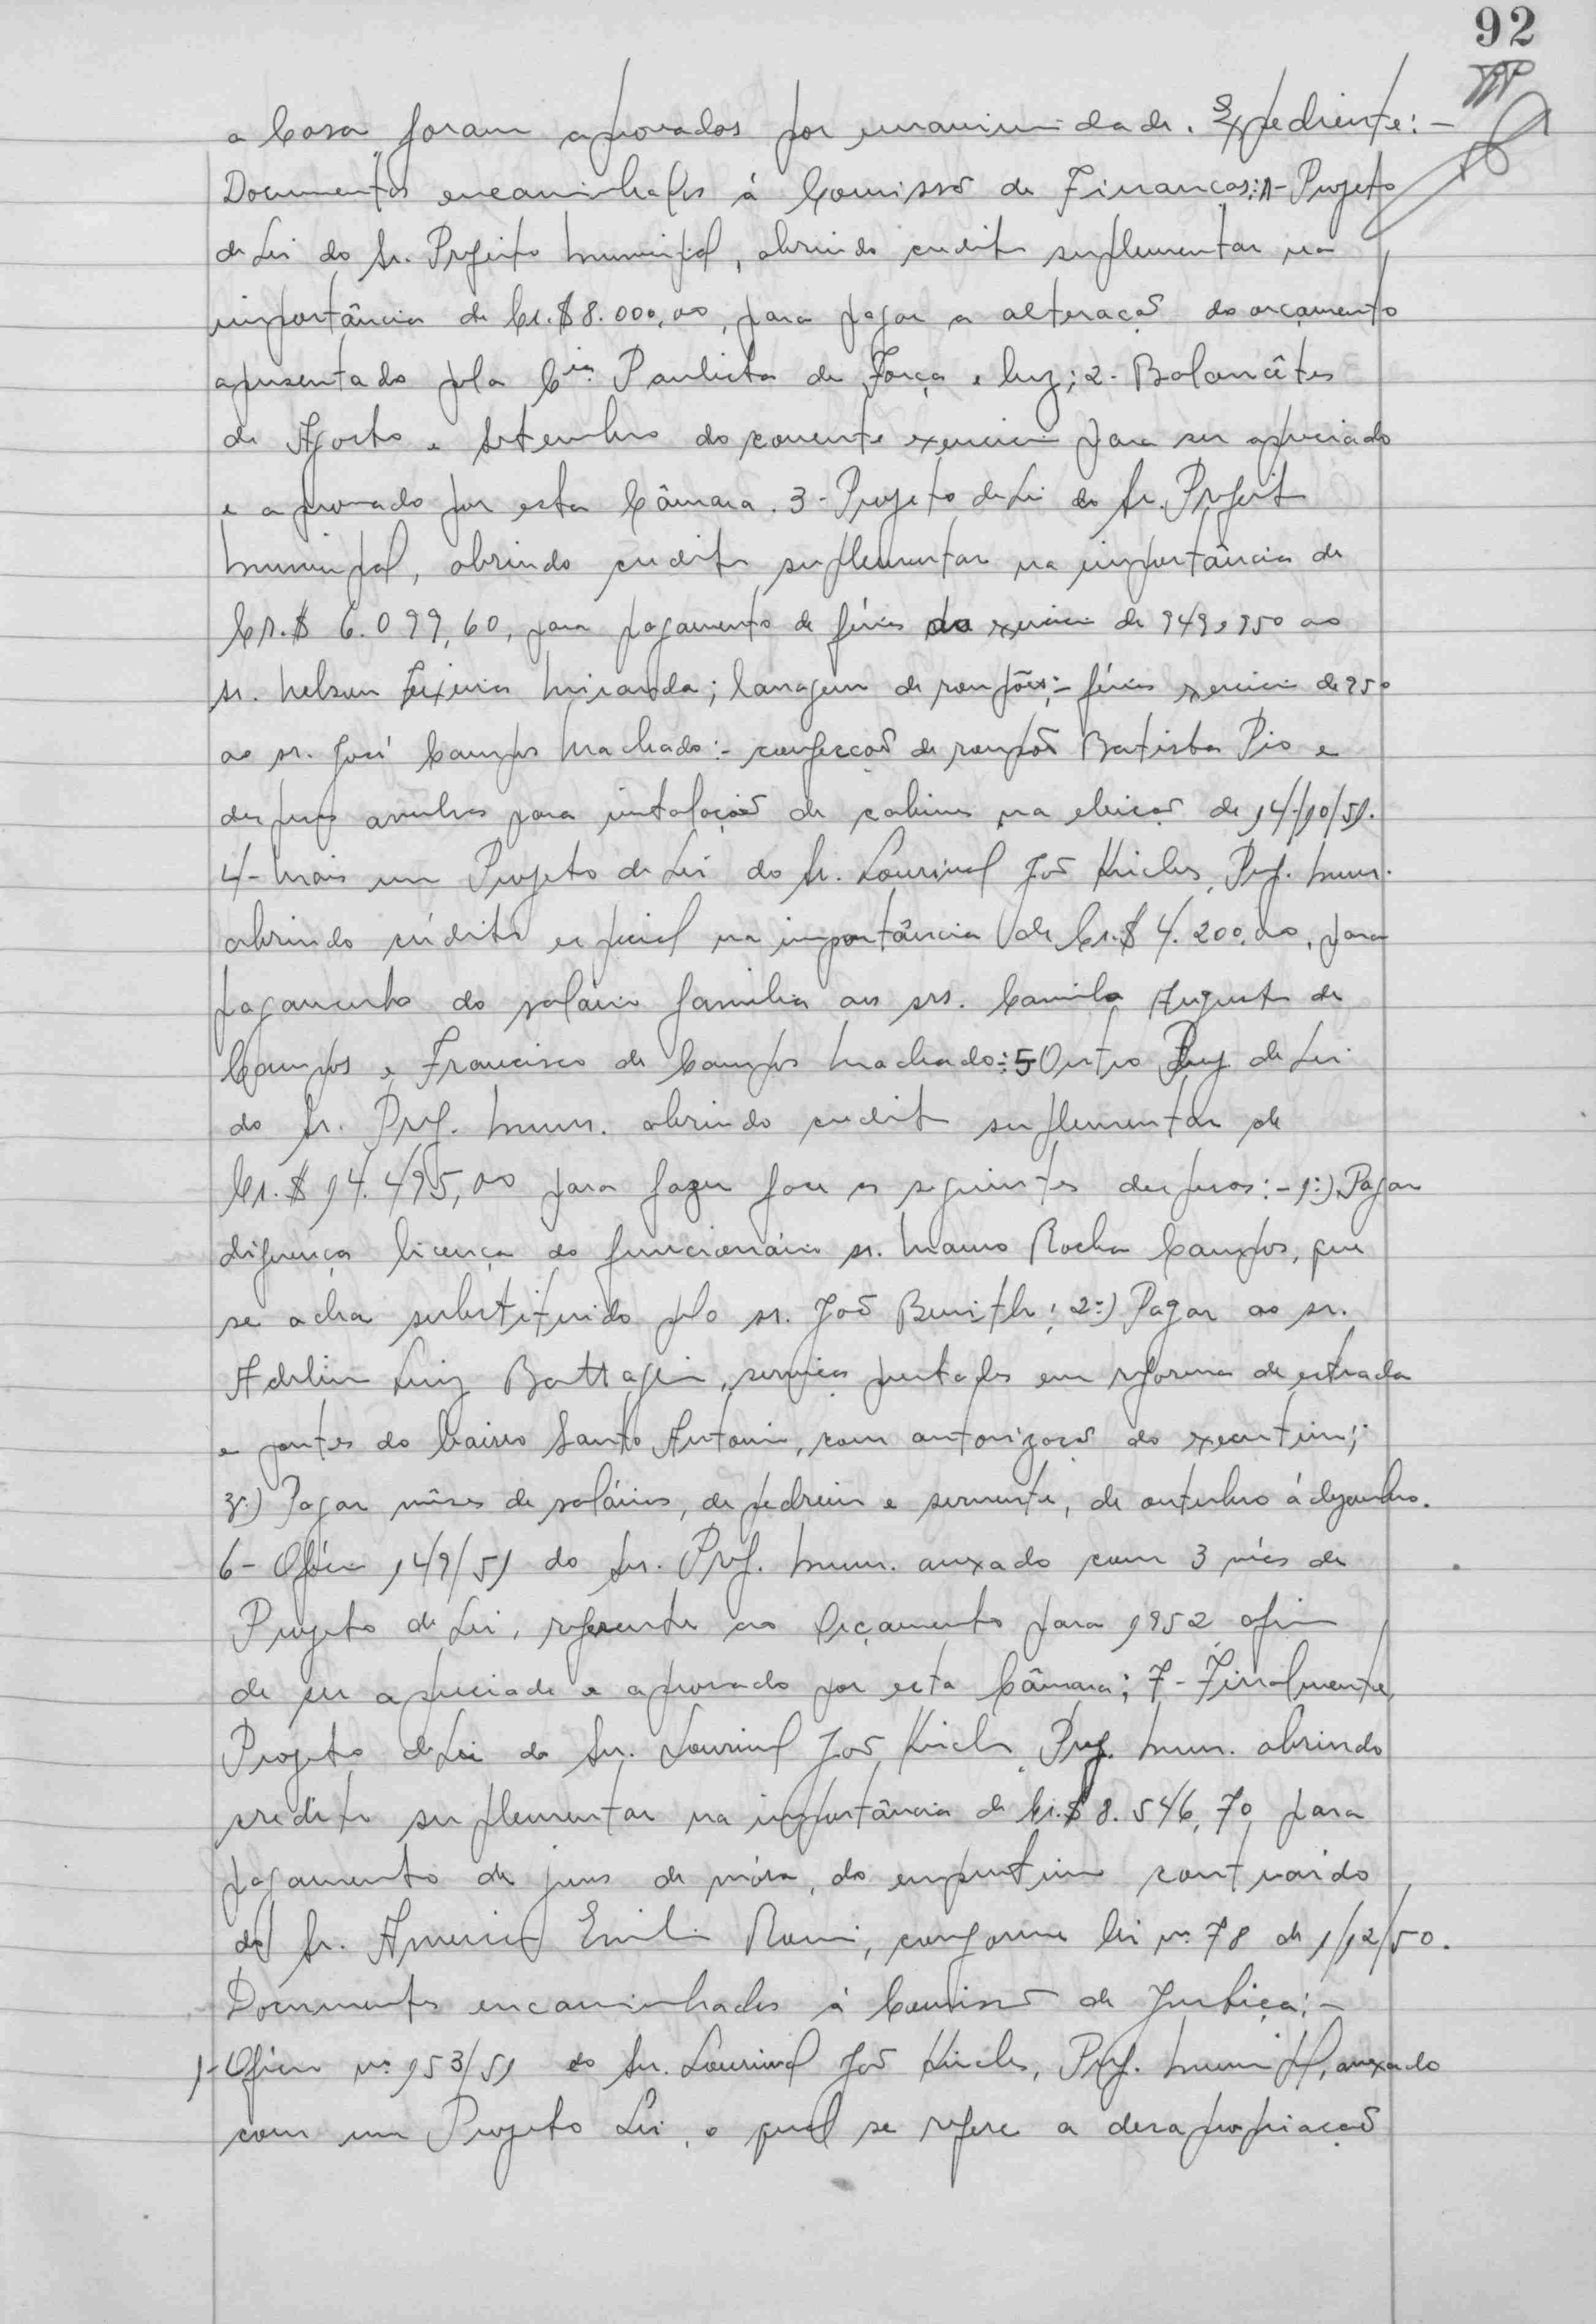 92
a Casa foram aprovados por unanimidade. Expediente:-
Documentos encaminhados á Comissão de Finanças: 1- Projeto
de Lei do Sr. Prefeito Municipal, abrindo credito suplementar na
importância de Cr.$ 8.000,00, para pagar a alteração do orçamento
apresentado pela Cia. Paulista de Força e Luz; 2- Balancêtes
de Agosto e Setembro do corrente exercicio para ser apreciado
e aprovado por esta Câmara. 3- Projeto de Lei do Sr. Prefeito
Municipal, abrindo credito suplementar na importância de
Cr.$ 6.099,60, para pagamento de férias do exercicio de 949 e 950 ao
sr. Nelson Teixeira Miranda; lavagem de roupões;- férias exercicio de 950
ao sr. José Campos Machado:- confecção de roupão Batista Pio e
despesas avulsas para instalação de cabines na eleição de 14/10/51.
4- Mais um Projeto de Lei do Sr. Lourival João Pref. Mun.
abrindo crédito especial na importância de Cr.$ 4.200,00, para
pagamento do salário familia aos srs. Camilo Augusto de
Campos e Francisco de Campos Machado: 5 Outro Proj. de Lei
do Sr. Pref. Mun. abrindo credito suplementar de
Cr.$ 14.495,00 para fazer face as seguintes despesas:- 1º) Pagar
diferença licença do funcionário sr. Mauro Rocha Campos, que
se acha substituido pelo sr. João 2º) Pagar ao sr.
Luiz serviços prestados em reforma de estrada
e pontes do bairro Santo Antonio, com autorização do executivo;
3º) Pagar mêses de salários, de pedreiro e servente, de outubro á dezembro.
6- Oficio 149/51 do Snr. Pref. Mun. anexado com 3 vias de
Projeto de Lei, referente ao Orçamento para 1952 afim
de ser apreciado e aprovado por esta Câmara; 7- Finalmente,
Projeto de Lei do Snr. Lourival João Pref. Mun. abrindo
credito suplementar na importância de Cr.$ 8.546,70 para
pagamento de juros de móra, do emprestimo contraído
do Sr. Americo Emilio Romi, conforme lei nº 78 de 1/12/50.
Documentos encaminhados á Comissão de Justiça:-
1- Oficio nº 153/51 do Snr. Lourival João Pref. Municipal, anexado
com um Projeto Lei, o qual se refere a desapropriação